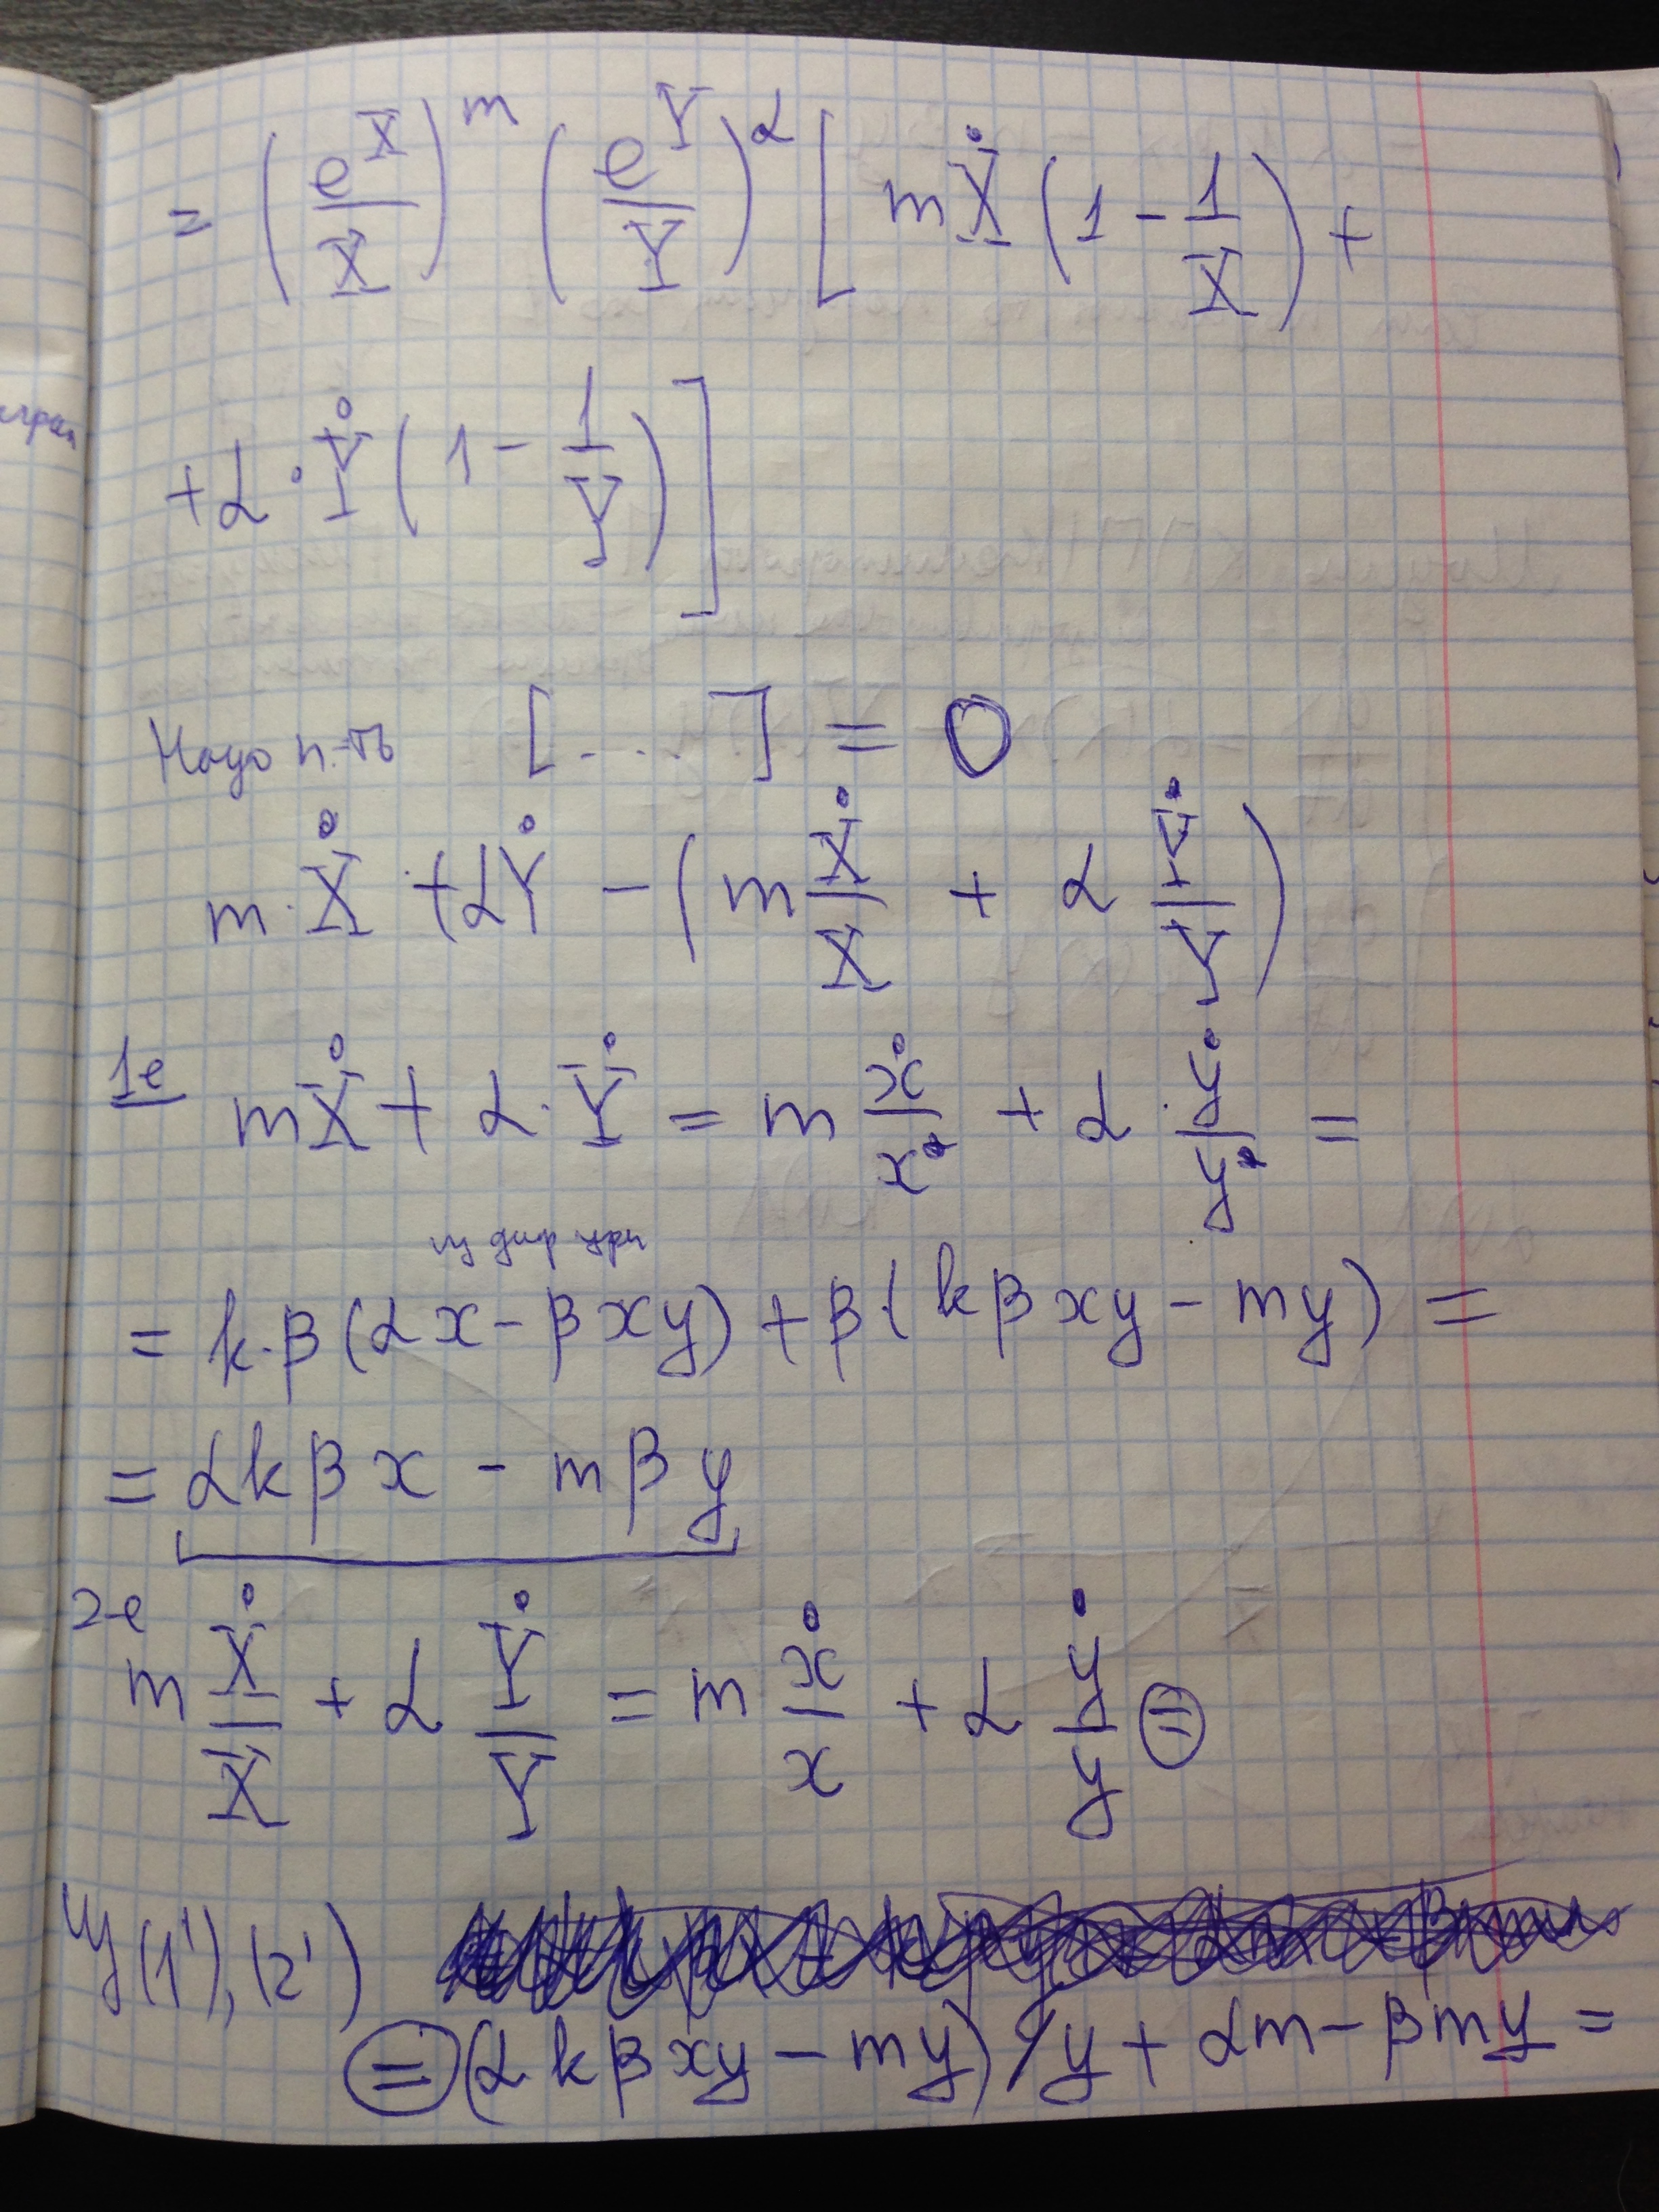 = (e^X/X)^m (e^Y/Y)^α [ mẊ (1 - 1/X) +
+ α · Ẏ (1 - 1/Y) ]
Надо п-ть [ . . . . ] = 0
m · Ẋ + αẎ - ( m Ẋ/X + α Ẏ/Y )
1е mẊ + α · Ẏ = m ẋ/x* + α ẏ/y* =
из диф ур
= k · β (αx - βxy) + β · (kβxy - my) =
= αkβx - mβy
2-е
m Ẋ/X + α Ẏ/Y = m ẋ/x + α ẏ/y =
Из (1'), (2')
= (αkβxy - my)/y + αm - βmy =